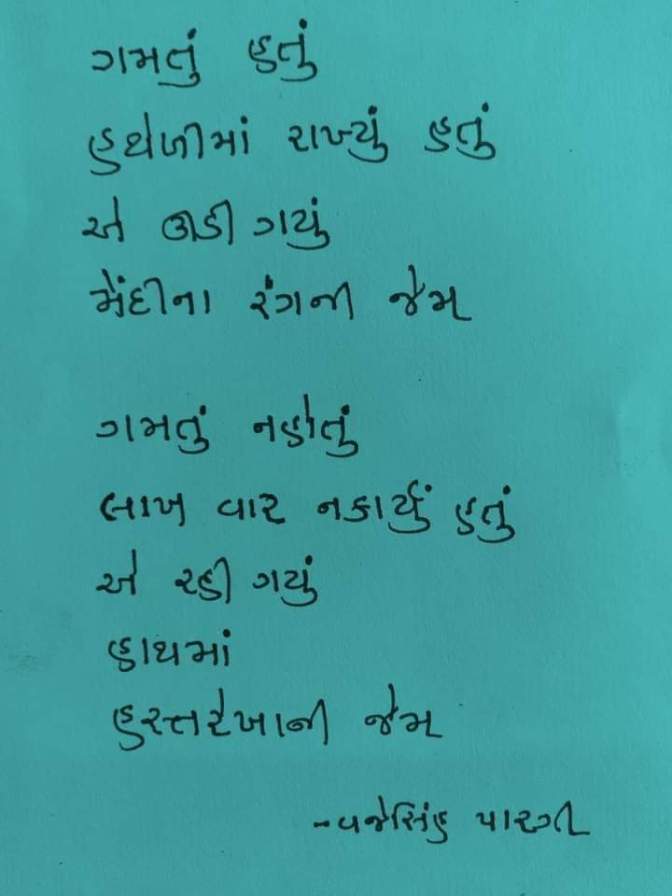 ગમતું હતું
હથેળીમાં રાખ્યું હતું
એ ઊડી ગયું
મેંદીના રંગની જેમ
ગમતું નહોતું
લાખ વાર નકાર્યું હતું
એ રહી ગયું
હાથમાં
હસ્તરેખાની જેમ
-વજેસિંહ પારગી